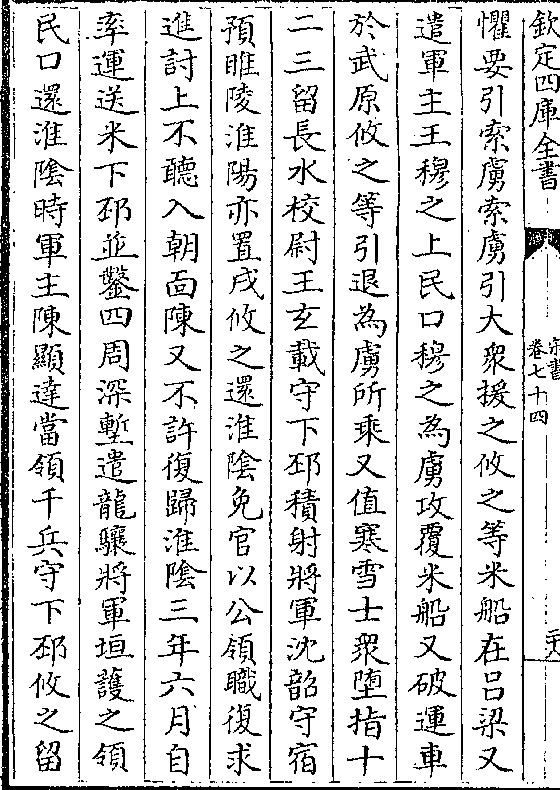 欽定四庫全書
宋書
卷七十四
懼要引索虜索虜引大衆援之攸之等米船在吕梁又
遣軍主王穆之上民口穆之為虜攻覆米船又破運車
於武原攸之等引退為虜所乘又值寒雪士衆墮指十
二三留長水校尉王玄載守下邳積射將軍沈韶守宿
預睢陵淮陽亦置戍攸之還淮陰免官以公領職復求
進討上不聽入朝面陳又不許復歸淮陰三年六月自
率運送米下邳並鑿四周深塹遣龍驤將軍垣護之領
民口還淮陰時軍主陳顯達當領千兵守下邳攸之留